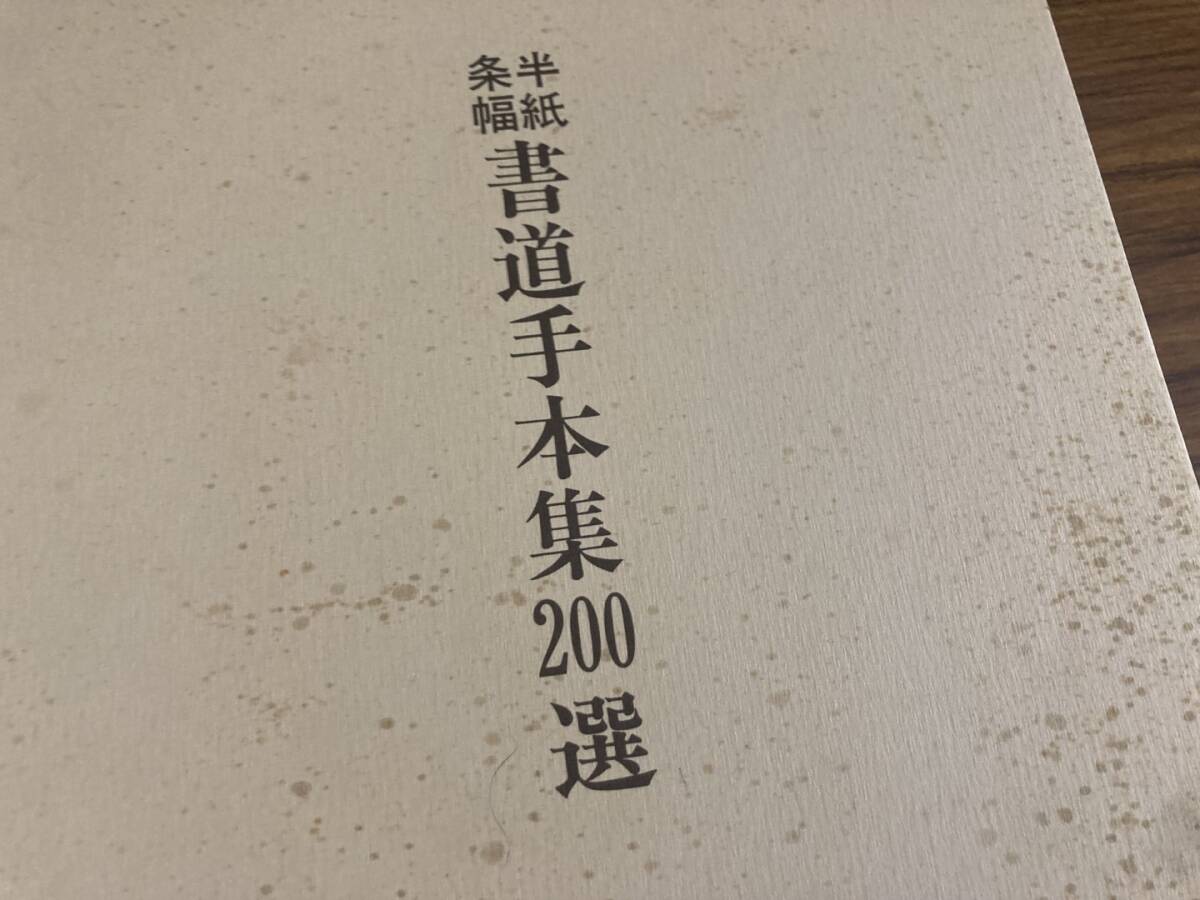 半紙
条幅
書道手本集200選